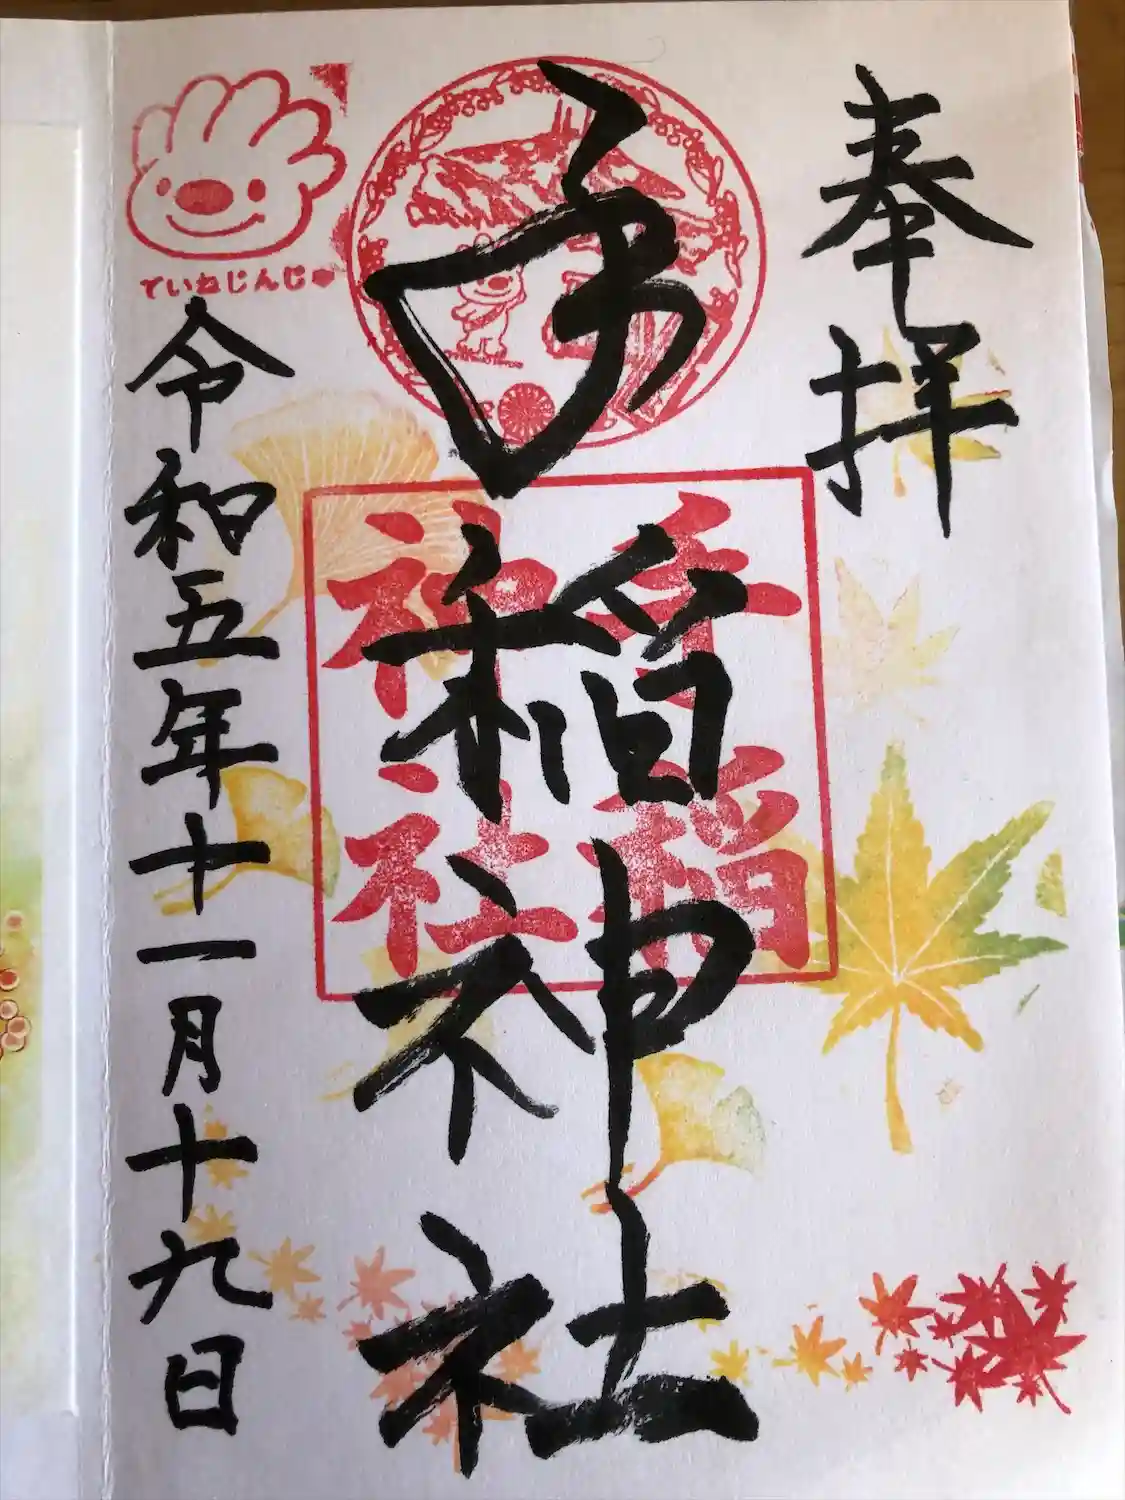 奉拝
手稲神社
手稲
神社
ていねじんじゃ
令和五年十一月十九日